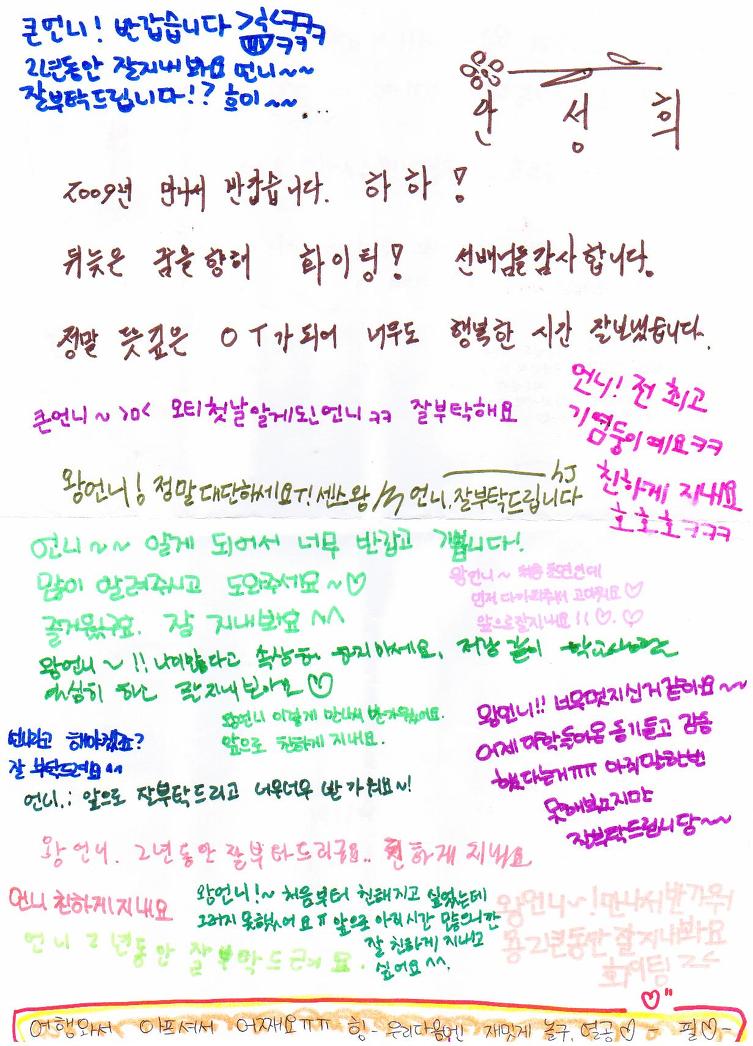 큰언니! 반갑습니다 >_< ㅋㅋㅋ
2년동안 잘지내봐요 언니~~
잘부탁드립니다!? 흐이~~
안성희
2009년 만나서 반갑습니다. 하하!
뒤늦은 꿈을 향해 화이팅! 선배님들감사합니다.
정말 뜻깊은 OT가 되어 너무도 행복한 시간 잘보냈습니다.
큰언니~ >ㅁ< 오티첫날알게된언니ㅋㅋ 잘부탁해요
언니! 전 최고
기염둥이예요ㅋㅋ
친하게 지내요
호호호ㅋㅋㅋ
왕언니! 정말대단하세요! 센스왕 언니, 잘부탁드립니다
hJ
언니~~ 알게 되어서 너무 반갑고 기쁩니다!
많이 알려주시고 도와주세요~♡
즐거웠구요. 잘 지내봐요^^
왕언니~ 처음
먼저 다가와주셔서 고마워요♡
앞으로잘지내요!! ♡.♡
왕언니~!! 나이많다고 속상해 마세요. 저랑 같이
열심히 하고 잘지내보아요♡
왕언니 이렇게 만나서 반가웠어요.
앞으로 친하게 지내요.
왕언니!! 너무멋지신거같아요~
어제 대학돌아온 동기듣고 감동
했다는거ㅠㅠ 아직말한번
못해봤지만
잘부탁드립니당~~
언니라고 해야겠죠?
잘 부탁드려요^^
언니.: 앞으로 잘부탁드리고 너무너무 반가워요~!
왕언니. 2년동안 잘부탁드리구요.. 친하게 지내요
언니 친하게지내요
왕언니!~ 처음부터 친해지고 싶었는데
그러지 못했어요ㅠ 앞으로 아직시간 많으니깐
잘 친하게 지내고
싶어요^^.
언니 2년동안 잘부탁드려요.
왕언니~! 만나서반가워
용2년동안잘지내봐요
화이팅! ><
여행와서 아프셔서 어째요ㅠㅠ 힝- 우리다음엔 재밌게 놀구, 열공♡ - 필♡-